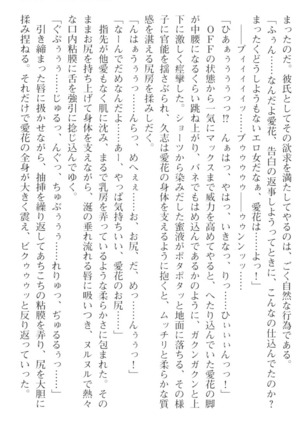 まったのだ。彼氏としてその欲求を満たしてやるのは、ごく自然な行為である。
「ふぅん……なんだよ愛花、告白の返事しようってときに、こんなの仕込んでたのか？
まったくどうしようもないエロ女だなぁ。愛花は……よっ！」
──ブィィィィィッ……ブゥゥゥゥ……ゥゥンンッ……
「ひあぁぅぅぅっつ⁉　んひっ、やっ、はっ、いきなり、りっ……ひぃぃぃんっ⁉」
ＯＦＦの状態から一気にマックスまで威力を高めてやると、へたり込んでいた愛花の脚
が中腰になるくらい跳ね上がり、バネでもはめ込んであるかのように、ガクンガクンと上
下に激しく痙攣した。ショーツから染みだした蜜液がボタボタ、と地面に落ちる。その様
子に官能を揺さぶられ、久志は愛花の身体を支えるように抱くと、ムッチリと柔らかな質
感を湛える尻房を揉みしだく。
「んはぁぅぅぅっ……らめっ……らめへぇぇ……お、お尻、だ、めっ……」
「なーんでだめなんだよ……あー、やっぱ気持ちいい、愛花のお尻……」
指先が他愛もなく肌に沈み、まるで乳房を弄っているような柔らかさに包まれた。その
ままお尻を持ち上げて身体を支えながら、涎の垂れ流れる唇に吸いつき、ヌルヌルで熱々
な口内粘膜に舌を強引に捻じ込んでゆく。
「ぐぷぅぅぅっ……じゅるっ、んぐっ、ちゅぷぅぅぅ……れりゅっ、ぢゅるるるぅっ……」
引き締まった唇に扱かせながら、抽挿を繰り返してあちこちの粘膜を弄り、尻を大胆に
揉み捏ねる。それだけで愛花の全身が大きく震え、ビクゥゥゥッと反り返っていった。